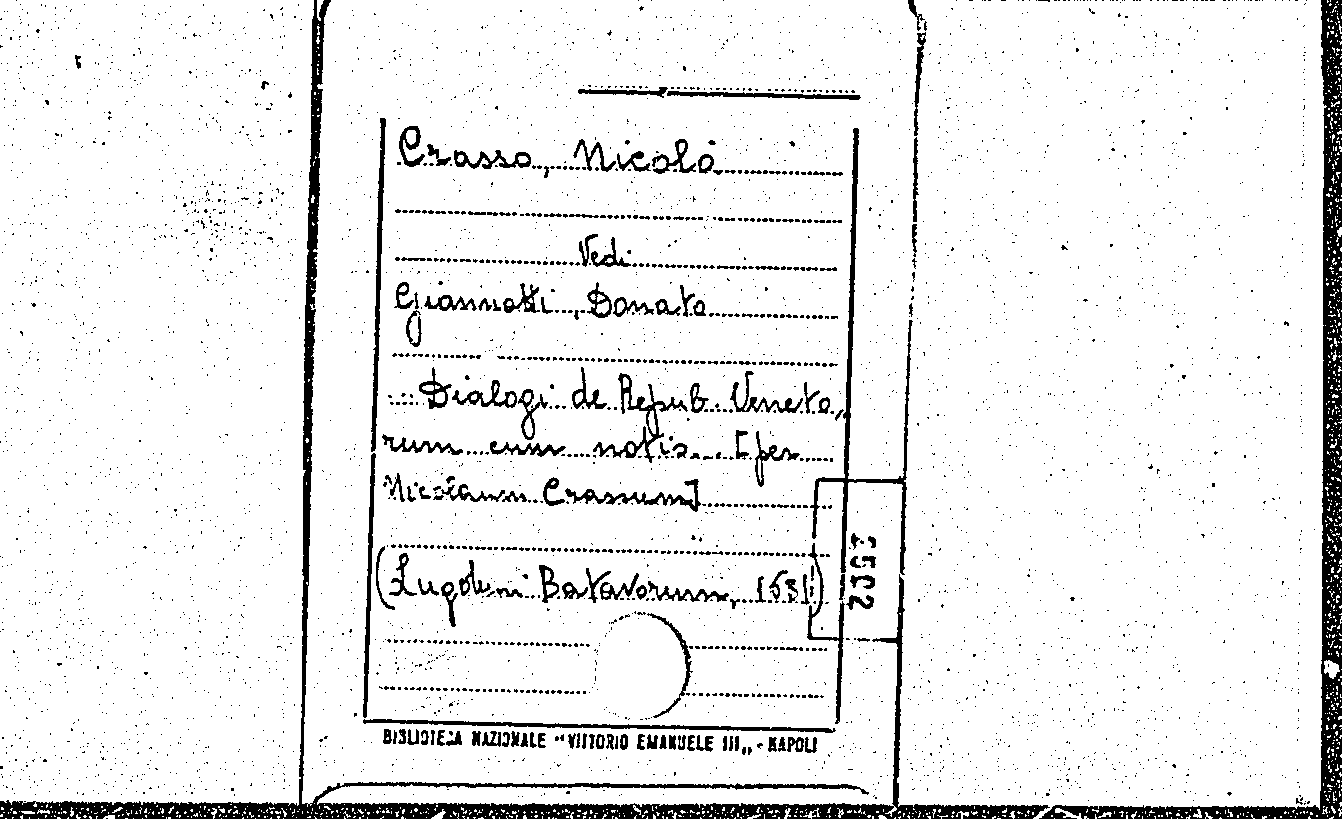 Crasso, Nicolò
Vedi
Giannotti, Donato
... Dialogi de Repub. Veneto„
rum cum notis... [per
Nicolaum Crassum]
(Lugduni Batavorum, 1631)
2502
BIBLIOTECA NAZIONALE "VITTORIO EMANUELE III„ - NAPOLI